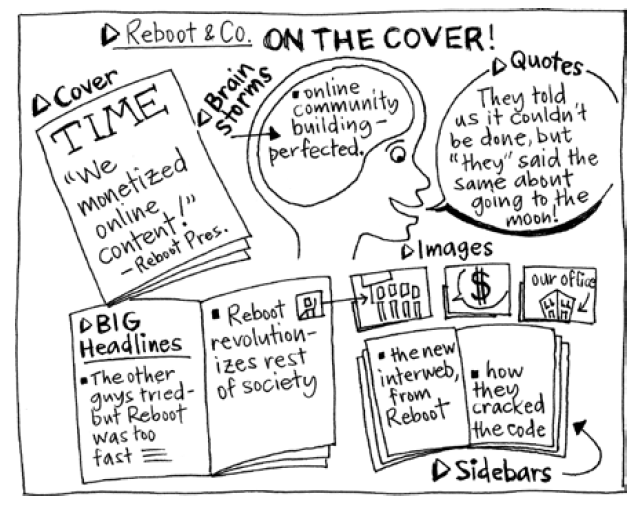 Reboot & Co. ON THE COVER!
Cover
TIME
"We
monetized
online
content!"
—Reboot Pres.
Brain
storms
▪ online
community
building—
perfected.
Quotes
They told
us it couldn't
be done, but
"they" said the
same about
going to the
moon!
Images
$
our office
BIG
Headlines
▪ The other
guys tried—
but Reboot
was too
fast
▪ Reboot
revolution-
izes rest
of society
▪ the new
interweb,
from
Reboot
▪ how
they
cracked
the code
Sidebars